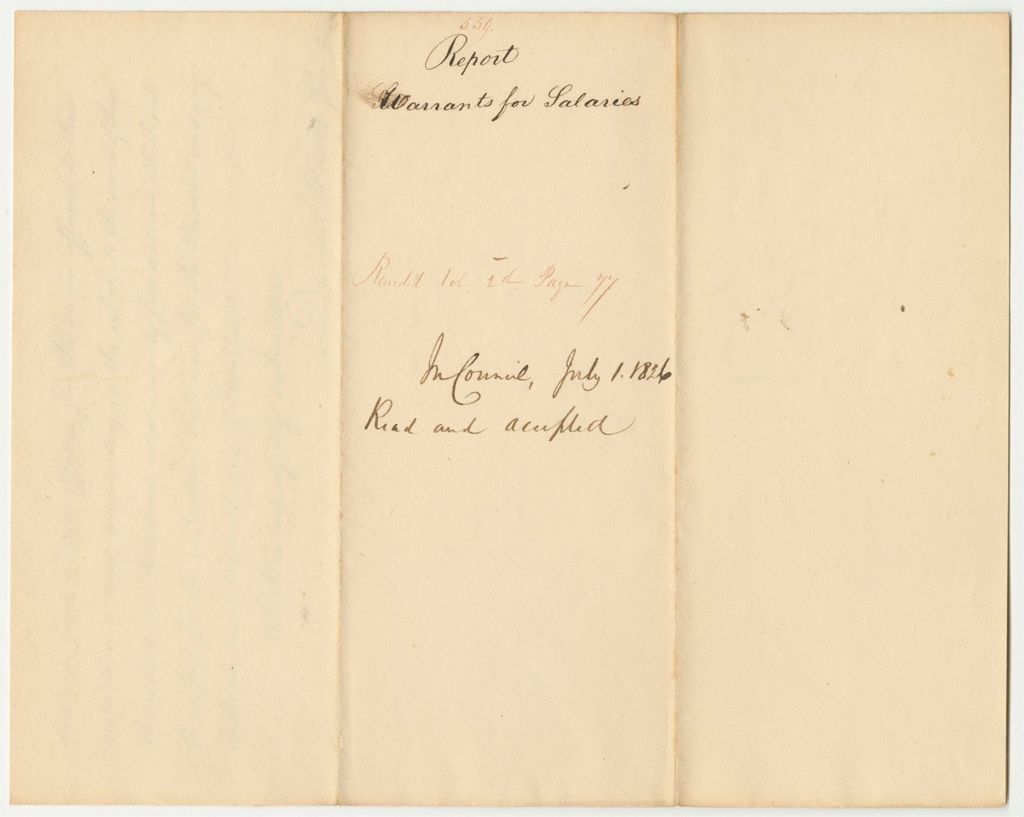 559.
Report
Warrants for Salaries
Record'd Vol 2d Page 77
In Council, July 1. 1826
Read and accepted